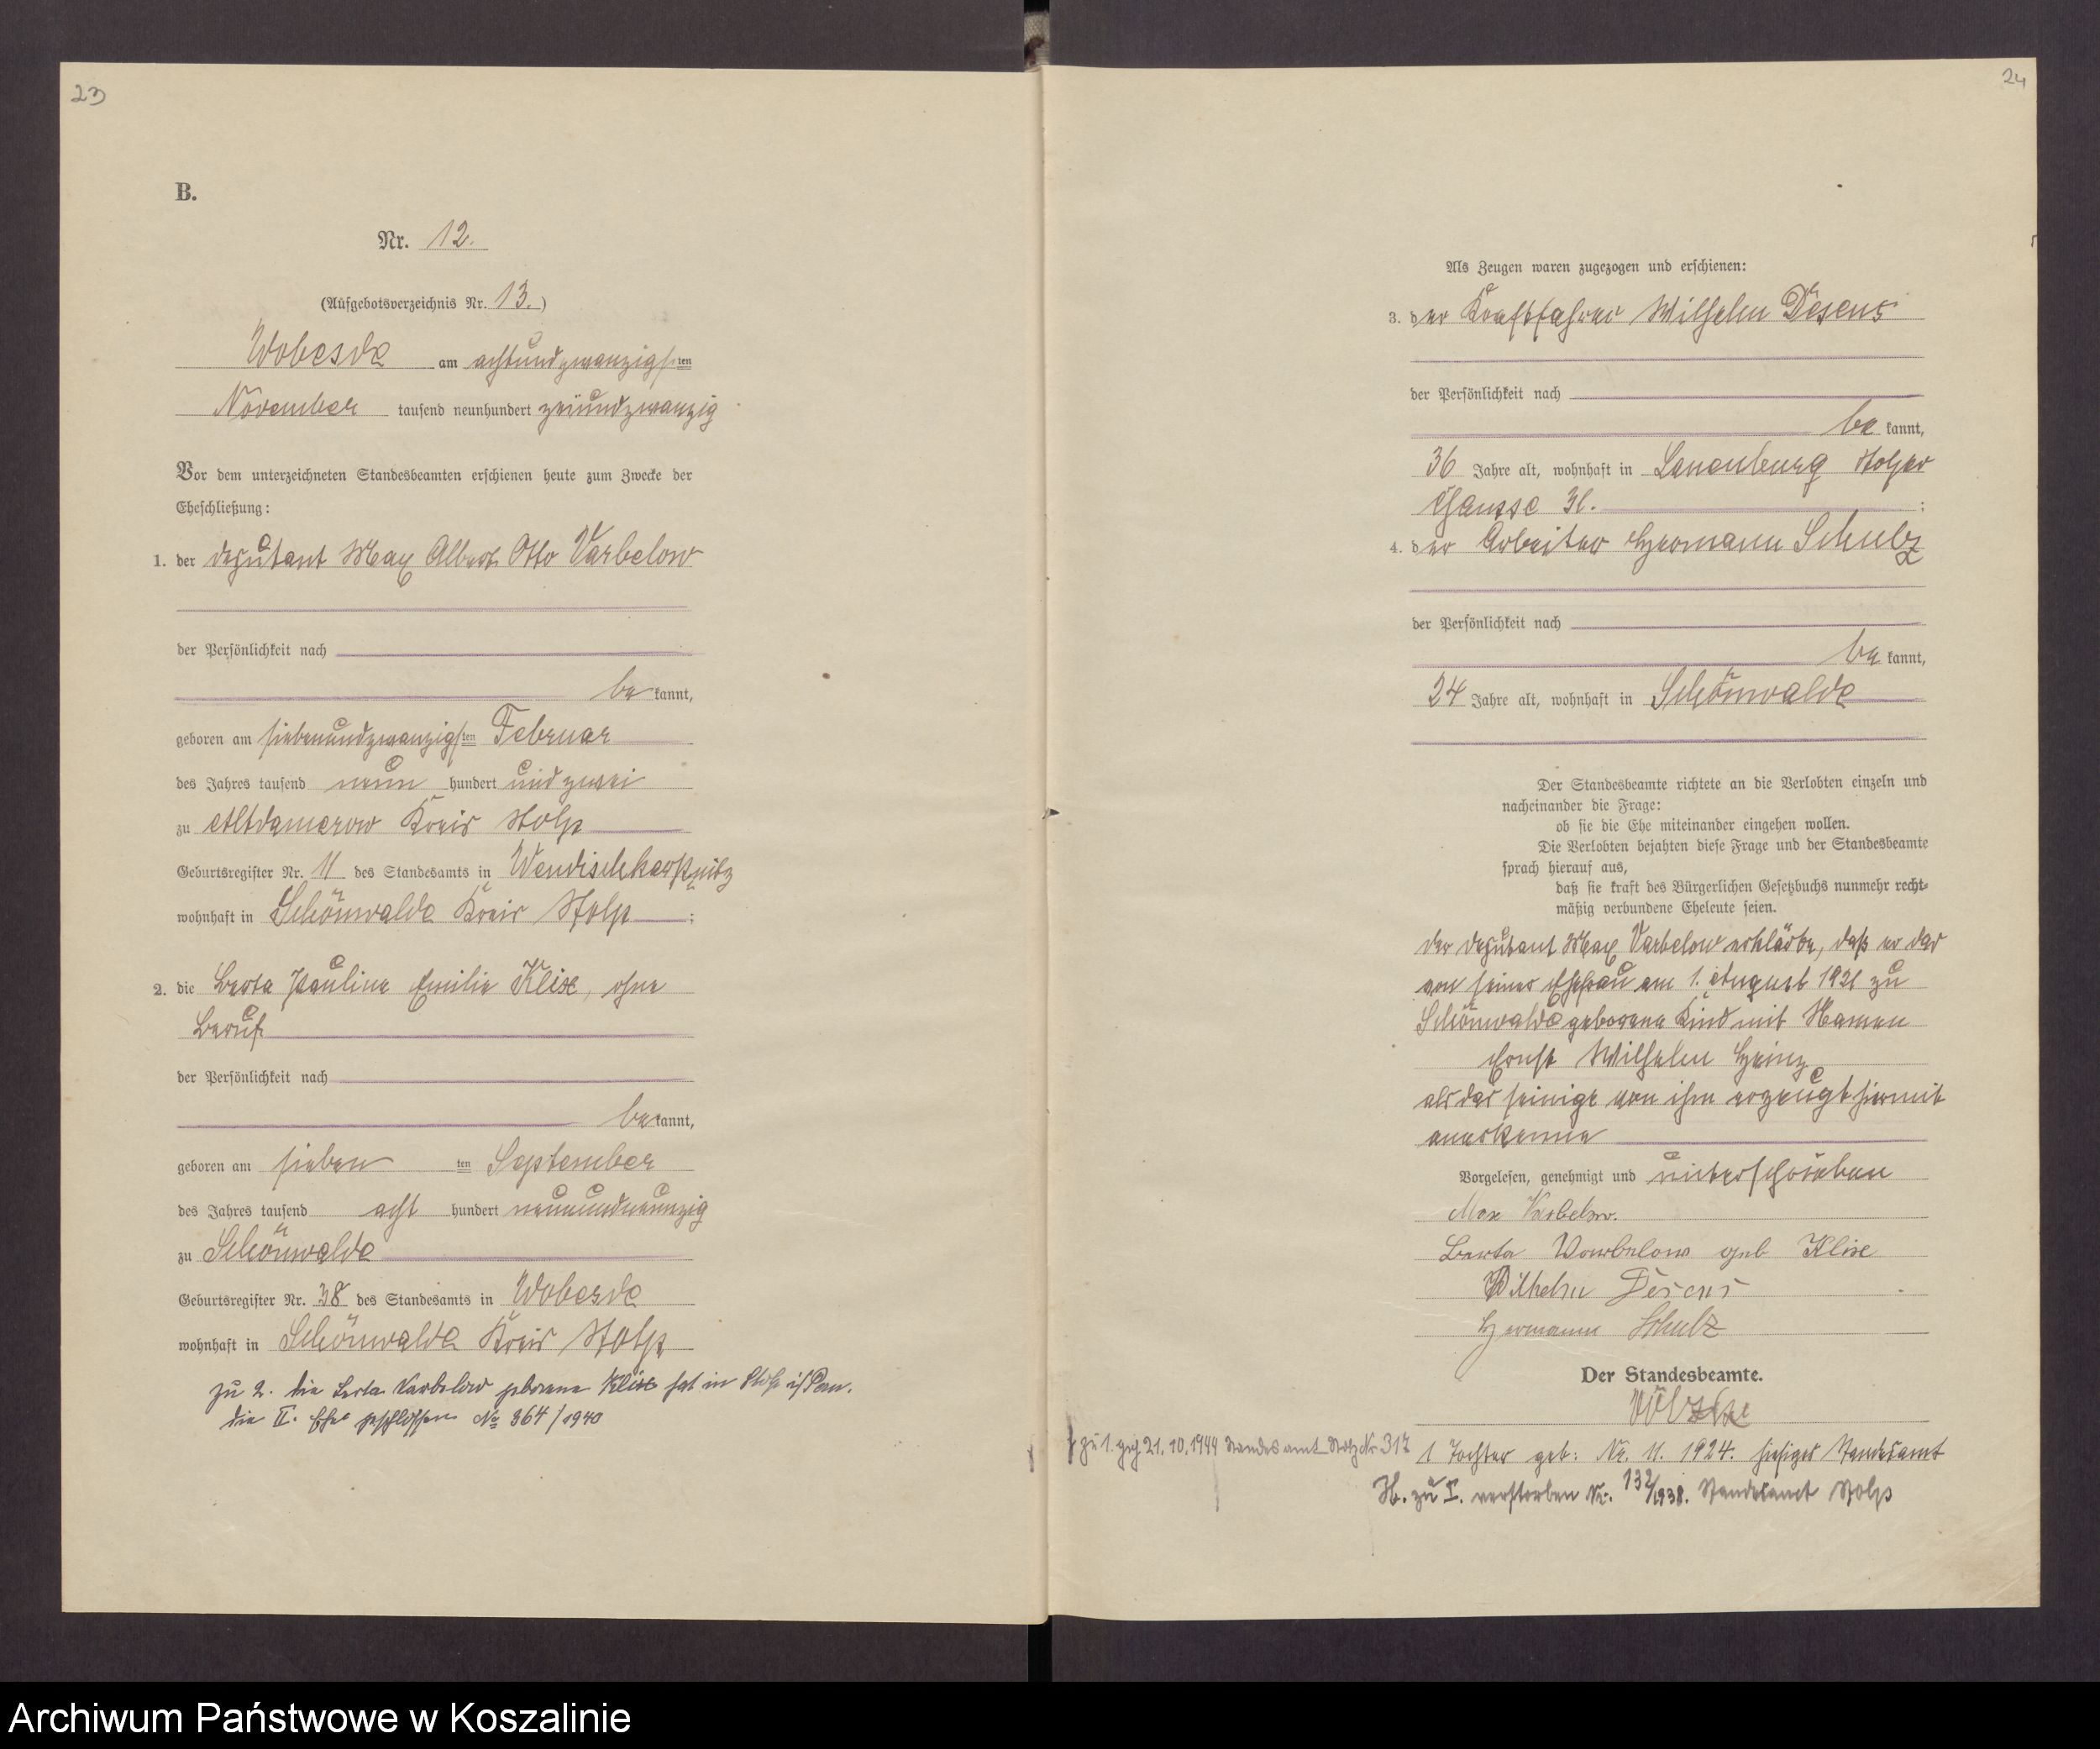 23
B.
Nr. 12.
(Aufgebotsverzeichnis Nr. 13.)
Wobesde am achtundzwanzigsten
November tausend neunhundert zweiundzwanzig
Vor dem unterzeichneten Standesbeamten erschienen heute zum Zwecke der
Eheschließung:
1. der Deputant Max Albert Otto Varbelow
der Persönlichkeit nach
be kannt,
geboren am siebenundzwanzigsten Februar
des Jahres tausend neun hundert und zwei
zu Altdamerow Kreis Stolp
Geburtsregister Nr. 11 des Standesamts in Wendischkarstnitz
wohnhaft in Schönwalde Kreis Stolp;
2. die Berta Pauline Emilie Klix, ohne
Beruf
der Persönlichkeit nach
be kannt,
geboren am sieben ten September
des Jahres tausend acht hundert neunundneunzig
zu Schönwalde
Geburtsregister Nr. 38 des Standesamts in Wobesde
wohnhaft in Schönwalde Kreis Stolp
zu 2. die Berta Varbelow geborene Klix hat in Stolp i/Pom.
die II. Ehe geschlossen No 364/1940
24
Als Zeugen waren zugezogen und erschienen:
3. der Kraftfahrer Wilhelm Desens
der Persönlichkeit nach
be kannt,
36 Jahre alt, wohnhaft in Lauenburg Stolper
Chausse 31.;
4. der Arbeiter Hermann Schulz
der Persönlichkeit nach
be kannt,
24 Jahre alt, wohnhaft in Schönwalde
Der Standesbeamte richtete an die Verlobten einzeln und
nacheinander die Frage:
ob sie die Ehe miteinander eingehen wollen.
Die Verlobten bejahten diese Frage und der Standesbeamte
sprach hierauf aus,
daß sie kraft des Bürgerlichen Gesetzbuchs nunmehr recht-
mäßig verbundene Eheleute seien.
Der Deputant Max Varbelow erklärte, daß er das
von seiner Ehefrau am 1. August 1921 zu
Schönwalde geborene Kind mit Namen
Ernst Wilhelm Heinz
als das seinige von ihm erzeugt hiermit
anerkenne
Vorgelesen, genehmigt und unterschrieben
Max Varbelow.
Berta Varbelow geb Klix
Wilhelm Desens
Hermann Schulz
Der Standesbeamte.
Völzke
zu 1. 21.10.1944 Standesamt Stolp Nr. 317
1 Tochter geb: Nr. 11. 1924. hiesiges Standesamt
H. zu I. verstorben Nr. 132/1938. Standesamt Stolp
Archiwum Państwowe w Koszalinie